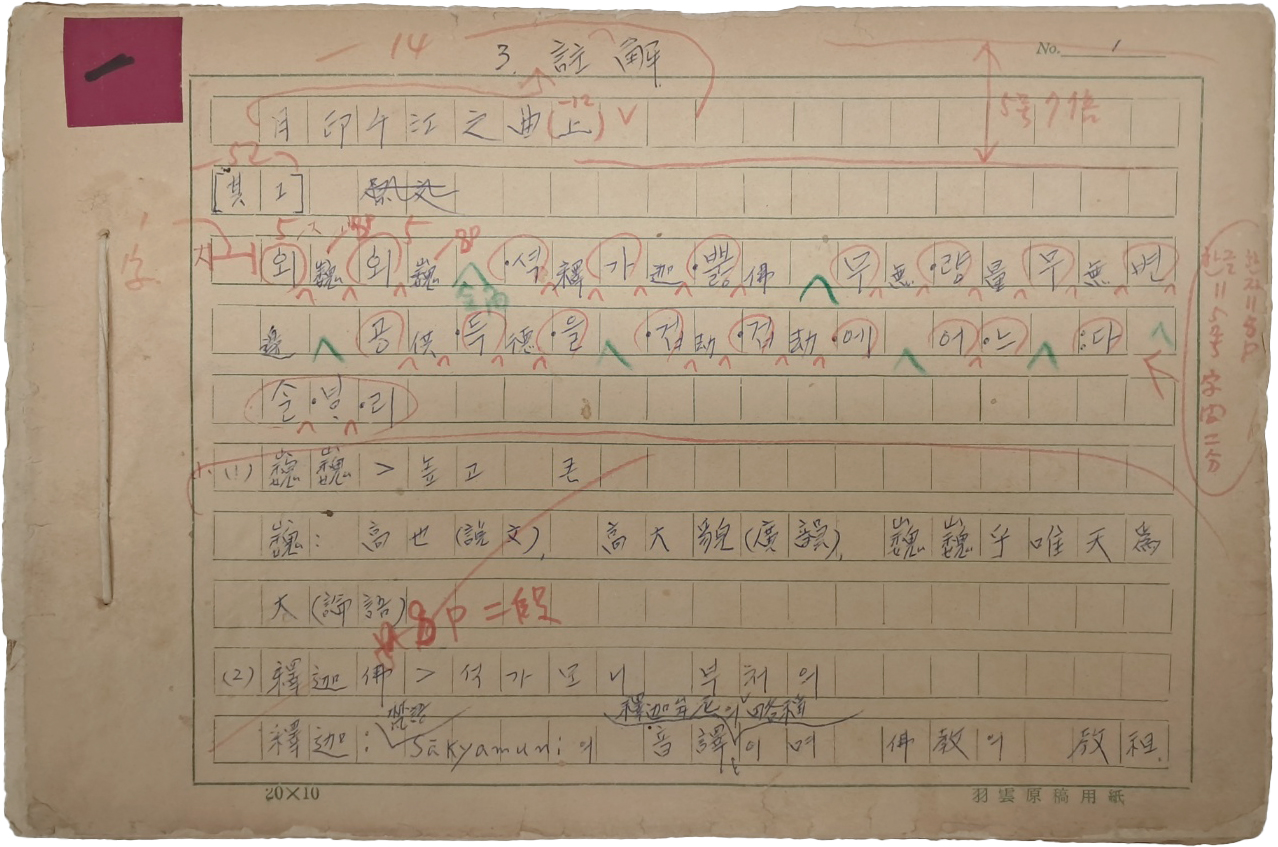 一
14
3. 註解
No. 1
月印千江之曲(上) V
5号7倍
52
[其 I]
1字
외巍외巍 ·석釋가迦·뿛佛 무無·량量무無변
邊 공供·득德·을 ·겁劫·겁劫·에 어·느 :다
솔·ᄫᆞ·리
한자=8P
한글=5号 字間二分
(1) 巍巍 > 높고 큰
巍: 高也(說文), 高大貌(廣韻), 巍巍乎唯天爲
大(論語)
8P =段
(2) 釋迦佛 > 석가모니 부처의
釋迦牟尼의 略稱
釋迦: Sākyamuni의 音譯이며 佛敎의 敎祖.
20×10
羽雲原稿用紙